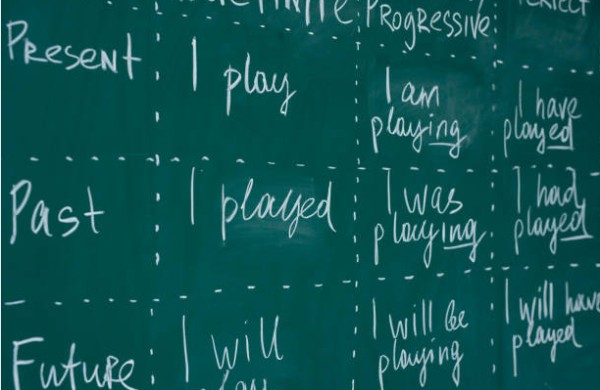 Progressive
Present
I play
I am
playing
I have
played
Past
I played
I was
playing
I had
played
Future
I will
play
I will be
playing
I will have
played